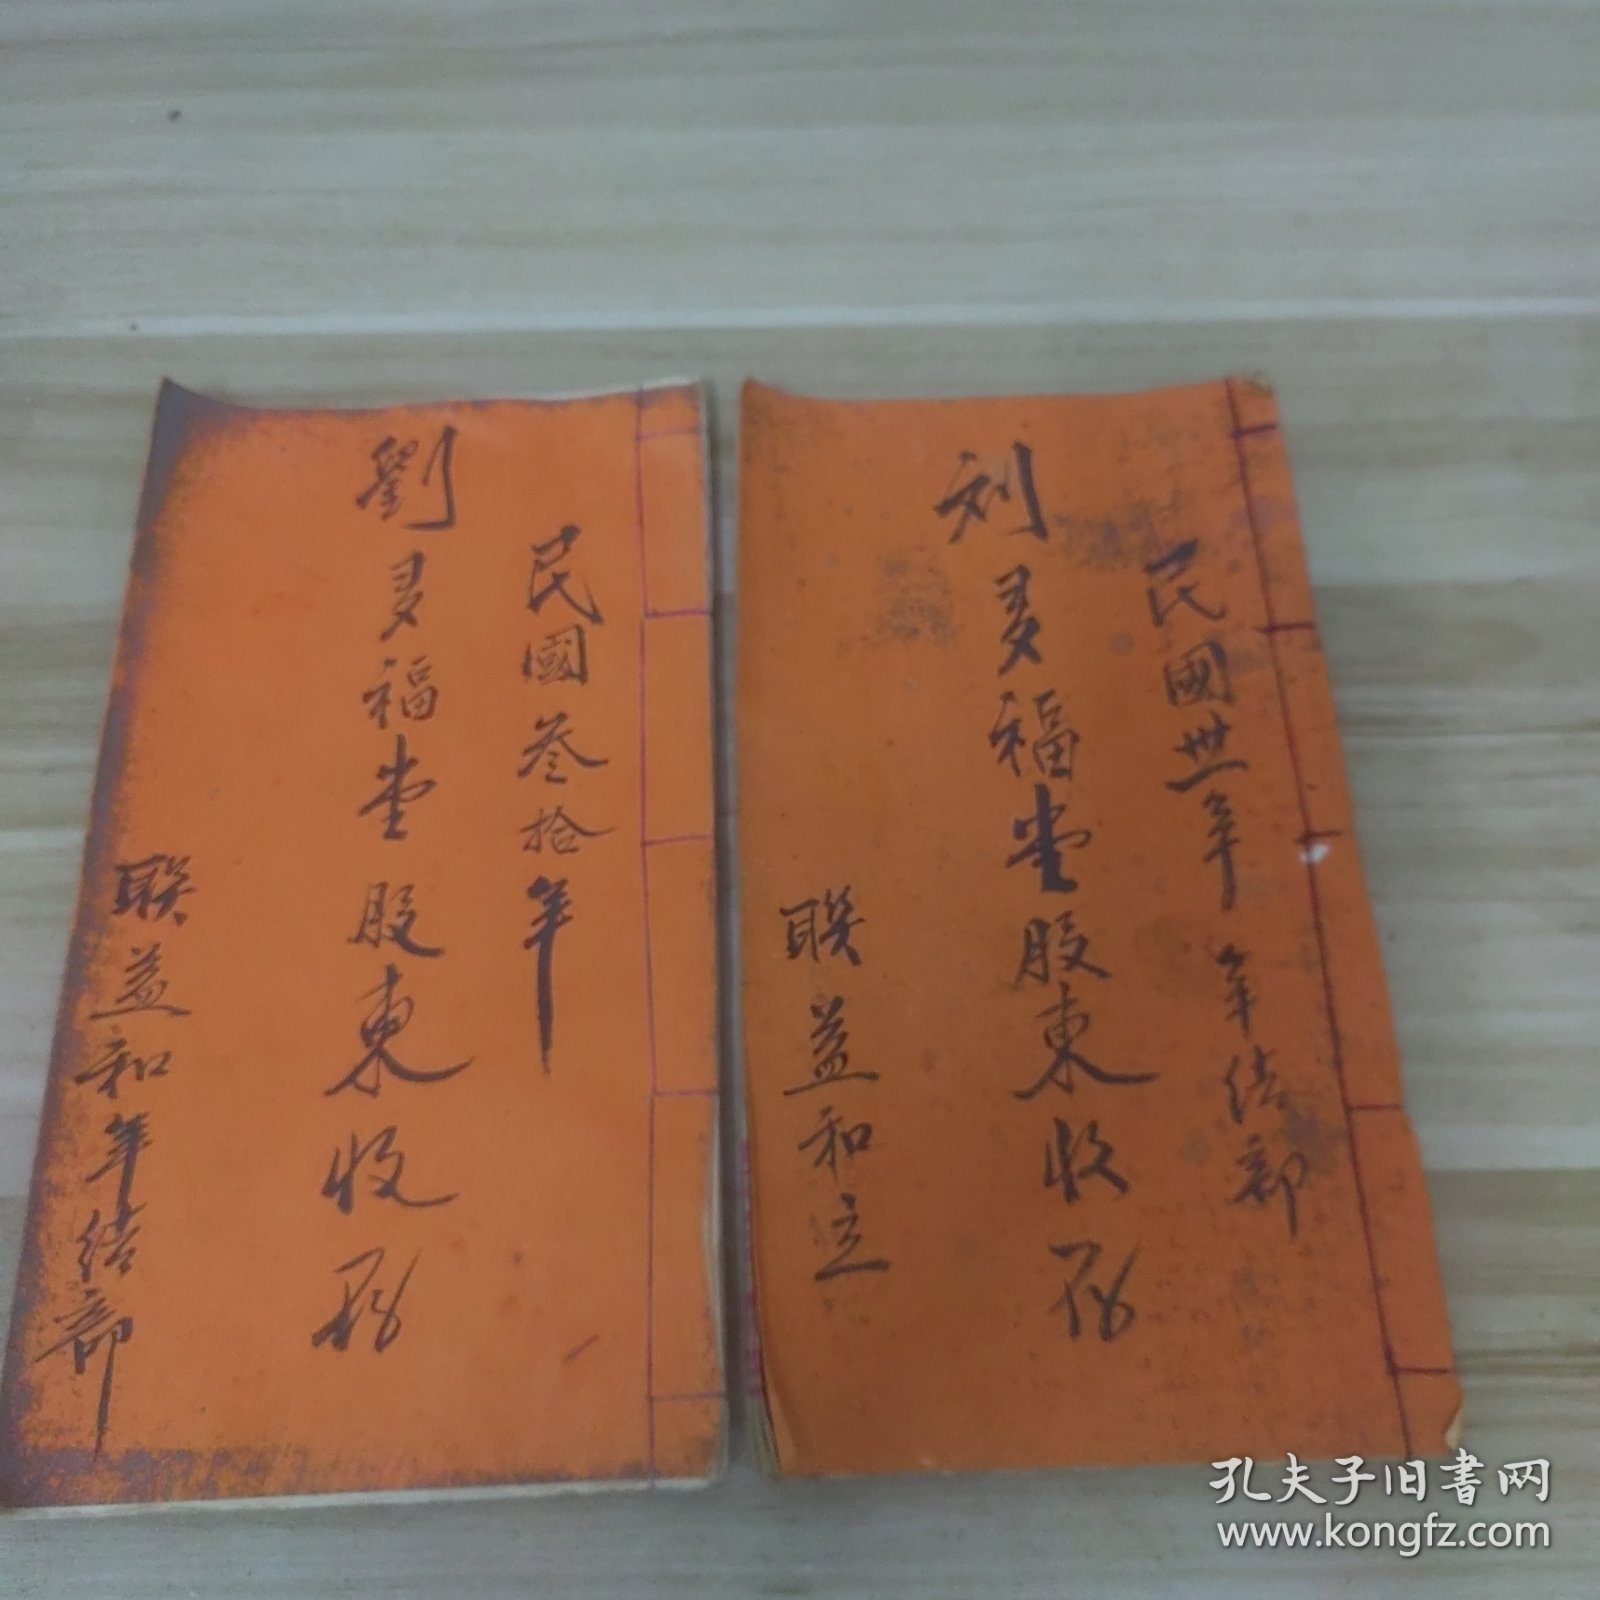 民國叁拾年
劉多福堂股東收存
联益和年結部
民國卅年 年结部
刘多福堂股東收存
联益和立
孔夫子旧書网
www.kongfz.com